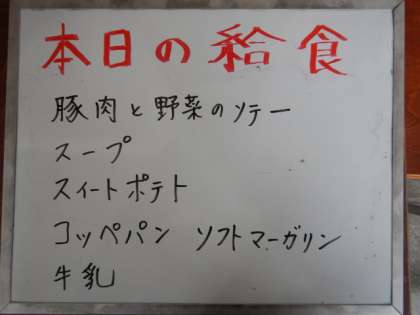 本日の給食
豚肉と野菜のソテー
スープ
スイートポテト
コッペパン ソフトマーガリン
牛乳